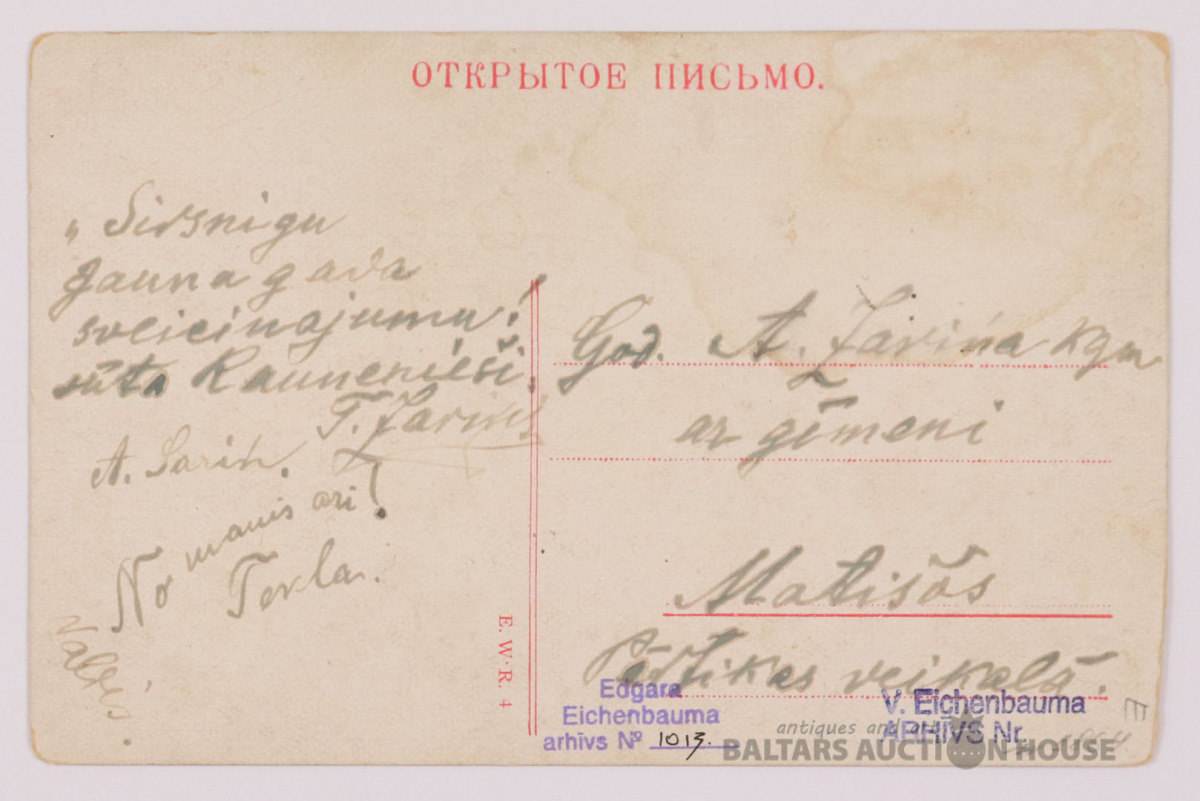 ОТКРЫТОЕ ПИСЬМО.
„ Sirsnigu
Jauna gada
sveicinajumu!
sūta Raunenieši.
T. Zariņš
A. Sarin.
No manis ari!
Tekla.
God. A. Zariņa kgm
ar ģimeni
Matišos
Pārtikas veikalā.
E. W. R. 4
Edgara
Eichenbauma
arhīvs Nº 1013.
V. Eichenbauma
ARHĪVS Nr.
antiques and art
BALTARS AUCTION HOUSE